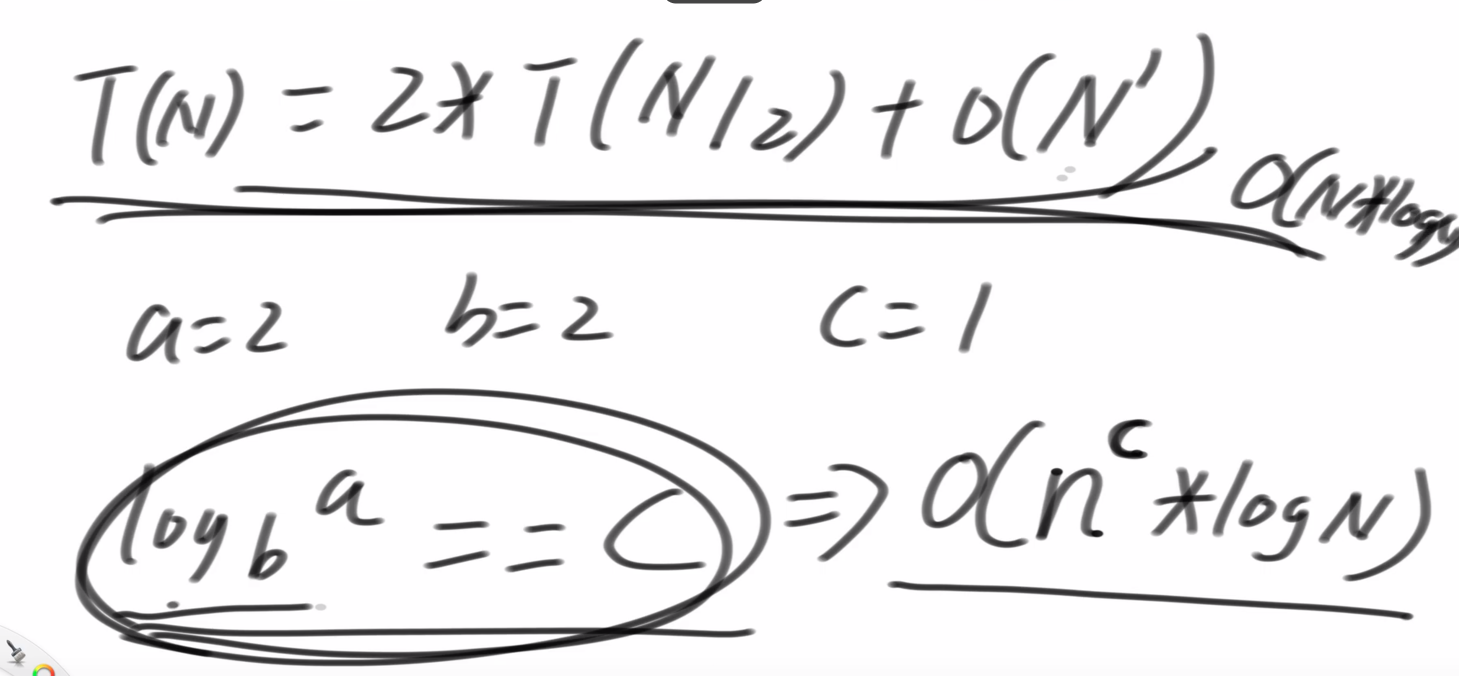 T(N) = 2 * T(N/2) + O(N¹)
O(N*logN)
a=2 b=2 c=1
log_b a == c => O(n^c * logN)